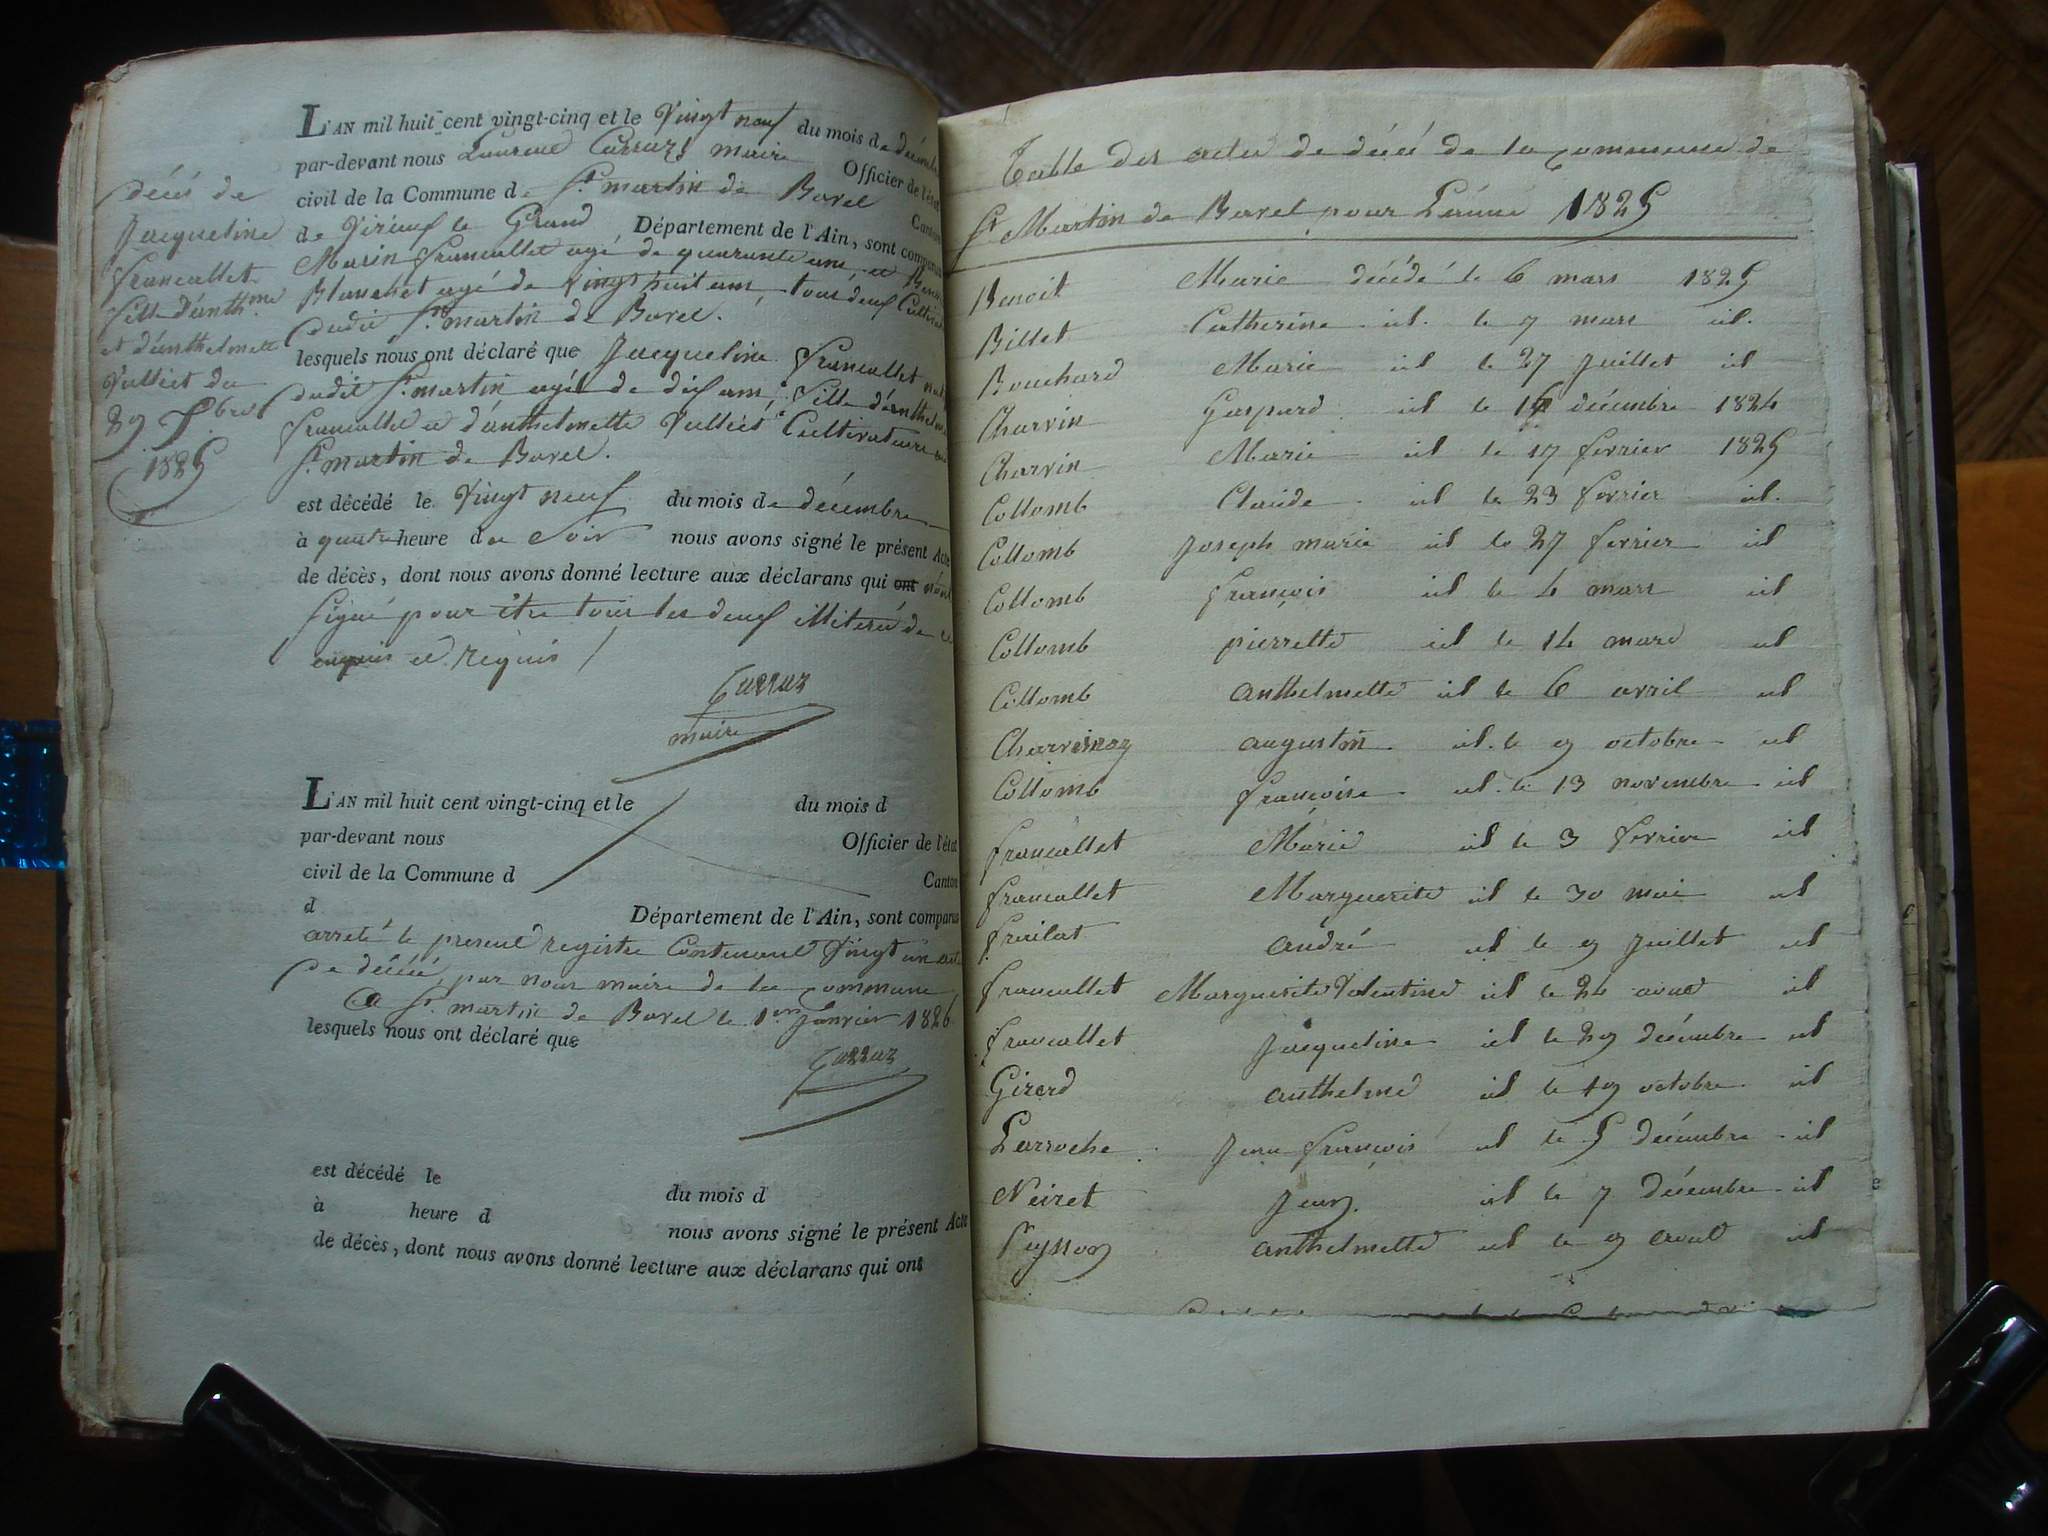 décès de
Jacqueline
francallet
fille d'anth.me
et d'anthelmette
Vulliet du
29 Xbre
1825
L'AN mil huit cent vingt-cinq et le Vingt neuf du mois de décembre
par-devant nous Laurent Carraz maire Officier de l'état
civil de la Commune de St martin de Bavel Canton
de Virieux le Grand Département de l'Ain, sont comparus
Marin francallet agé de quarante ans, et
Blanchet agé de vingt huit ans tous deux
dudit St martin de Bavel.
lesquels nous ont déclaré que Jacqueline francallet
dudit St martin agée de dix ans, fille d'anthelme
francallet et d'anthelmette Vulliet Cultivateurs
St martin de Bavel.
est décédé le Vingt neuf du mois de décembre
à quatre heure du Soir nous avons signé le présent Acte
de décès, dont nous avons donné lecture aux déclarans qui ont n'ont
signé pour être tous les deux illiteré de ce
enquis et requis /
Carraz
maire
L'AN mil huit cent vingt-cinq et le du mois d
par-devant nous Officier de l'état
civil de la Commune d Canton
d Département de l'Ain, sont comparus
arreté le present registre Contenant Vingt un acte
de décès, par nous maire de la commune
A St martin de Bavel le 1er Janvier 1826
lesquels nous ont déclaré que
Carraz
est décédé le du mois d
à heure d nous avons signé le présent Acte
de décès, dont nous avons donné lecture aux déclarans qui ont
Table des actes de décès de la commune de
St Martin de Bavel pour L'année 1825
Benoit Marie décédé le 6 mars 1825
Billet Catherine id. le 7 mars id.
Bouchard Marie id le 27 Juillet id
Charvin Gaspard id le décembre 1824
Charvin Marie id le 17 fevrier 1825
Collomb Claude id le 23 fevrier id.
Collomb Joseph marie id le 27 fevrier id
Collomb françois id le 4 mars id
Collomb pierrette id le 14 mars id
Collomb anthelmette id le 6 avril id
augustin id. le 9 octobre id
Collomb françoise id. le 13 novembre id
francallet Marie id le 3 fevrier id
francallet Marguerite id le 30 mai id
andré id le 9 Juillet id
francallet Marguerite Valentine id le 24 aout id
francallet Jacqueline id le 29 décembre id
Girerd anthelme id le 19 octobre id
Larroche Jean françois id le 5 décembre id
Neiret Jean id le 7 décembre id
Peysson anthelmette id le 9 aout id